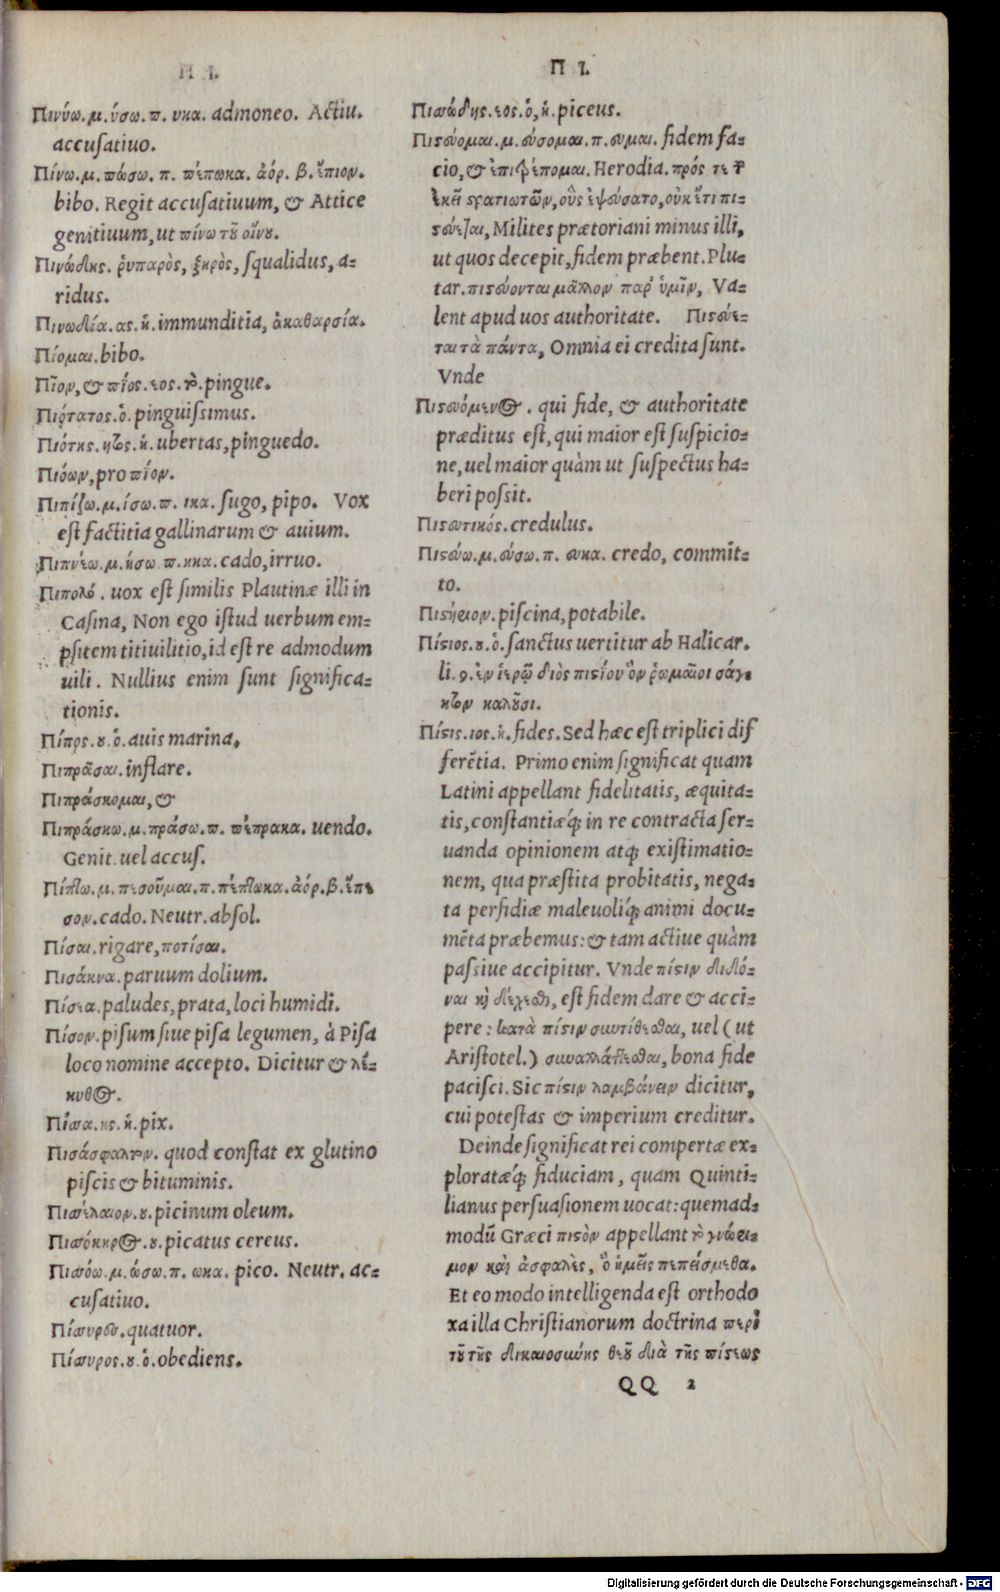 Π I.
Πινύω.μ.ύσω.π. υκα. admoneo. Actiu.
accusatiuo.
Πίνω.μ.πώσω. π. πέπωκα. ἀόρ. β. ἔπιον.
bibo. Regit accusatiuum, & Attice
genitiuum, ut πίνω τοῦ οἴνου.
Πινώδης. ῥυπαρὸς, ξηρὸς, squalidus, a-
ridus.
Πινωδία.ας.ἡ. immunditia, ἀκαθαρσία.
Πίομαι.bibo.
Πῖον, & πῖος.εος.τὸ.pingue.
Πιότατος.ὁ.pinguissimus.
Πιότης.ητος.ἡ.ubertas, pinguedo.
Πιόων, pro πίον.
Πιπίζω.μ.ίσω.π. ικα. sugo, pipo. Vox
est factitia gallinarum & auium.
Πιπνέω.μ.ήσω.π.ηκα. cado, irruo.
Πιπολό. uox est similis Plautinæ illi in
Casina, Non ego istud uerbum em-
psitem titiuilitio, id est re admodum
uili. Nullius enim sunt significa-
tionis.
Πίπρς.ου.ὁ.auis marina.
Πιπρᾶσαι.inflare.
Πιπράσκομαι, &
Πιπράσκω.μ.πράσω.π. πέπρακα. uendo.
Genit.uel accus.
Πίπτω.μ.πεσοῦμαι.π.πέπτωκα.ἀόρ.β.ἔπε
σον.cado.Neutr.absol.
Πίσαι.rigare, ποτίσαι.
Πισάκνα.paruum dolium.
Πίσεα.paludes, prata, loci humidi.
Πίσον.pisum siue pisa legumen, à Pisa
loco nomine accepto. Dicitur & λέ-
κυθος.
Πίσσα.ης.ἡ.pix.
Πισσάσφαλτον. quod constat ex glutino
piscis & bituminis.
Πισσέλαιον.ου.picinum oleum.
Πισσόκηρος.ου.picatus cereus.
Πισσόω.μ.ώσω.π. ωκα. pico. Neutr. ac-
cusatiuo.
Πίσυρα.quatuor.
Πίσυρος.ου.ὁ.obediens.
Π I.
Πισσώδης.εος.ὁ, ἡ.piceus.
Πιστεύομαι.μ.εύσομαι.π.ευμαι. fidem fa-
cio, & ἐπιτρέπομαι. Herodia. πρός τε τῶν
ἐκεῖ στρατιωτῶν, οὓς ἐψεύσατο, οὐκ ἔτι πι-
στεύεται, Milites prætoriani minus illi,
ut quos decepit, fidem præbent. Plu-
tar. πιστεύονται μᾶλλον παρ' ὑμῖν, Va-
lent apud uos authoritate. Πιστεύε-
ται τὰ πάντα, Omnia ei credita sunt.
Vnde
Πιστευόμενος. qui fide, & authoritate
præditus est, qui maior est suspicio-
ne, uel maior quàm ut suspectus ha-
beri possit.
Πιστευτικός. credulus.
Πιστεύω.μ.εύσω.π. ευκα. credo, commit-
to.
Πιστήριον.piscina, potabile.
Πίστιος.ου.ὁ.sanctus uertitur ab Halicar.
li.9.ἐν ἱερῷ διὸς πιστίου ὃν ῥωμαῖοι σάγ-
κτον καλοῦσι.
Πίστις.ιος.ἡ.fides.Sed hæc est triplici dif
ferẽtia. Primo enim significat quam
Latini appellant fidelitatis, æquita-
tis, constantiæq́ꝫ in re contracta ser-
uanda opinionem atqꝫ existimatio-
nem, qua præstita probitatis, nega-
ta perfidiæ maleuoliq́ꝫ animi docu-
mẽta præbemus: & tam actiue quàm
passiue accipitur. Vnde πίστιν διδό-
ναι καὶ δέχεσθαι, est fidem dare & acci-
pere: κατὰ πίστιν συντίθεσθαι, uel (ut
Aristotel.) συναλλάττεσθαι, bona fide
pacisci. Sic πίστιν λαμβάνειν dicitur,
cui potestas & imperium creditur.
Deinde significat rei compertæ ex-
ploratæq́ꝫ fiduciam, quam Quinti-
lianus persuasionem uocat: quemad-
modũ Græci πιστὸν appellant τὸ γνώρι-
μον καὶ ἀσφαλὲς, ὃ ἡμεῖς πεπείσμεθα.
Et eo modo intelligenda est orthodo
xa illa Christianorum doctrina περὶ
τοῦ τῆς δικαιοσύνης θεοῦ διὰ τῆς πίστεως
QQ 2
Digitalisierung gefördert durch die Deutsche Forschungsgemeinschaft - DFG